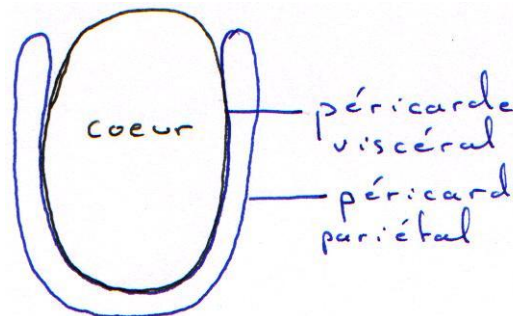 coeur
péricarde
viscéral
péricard
pariétal